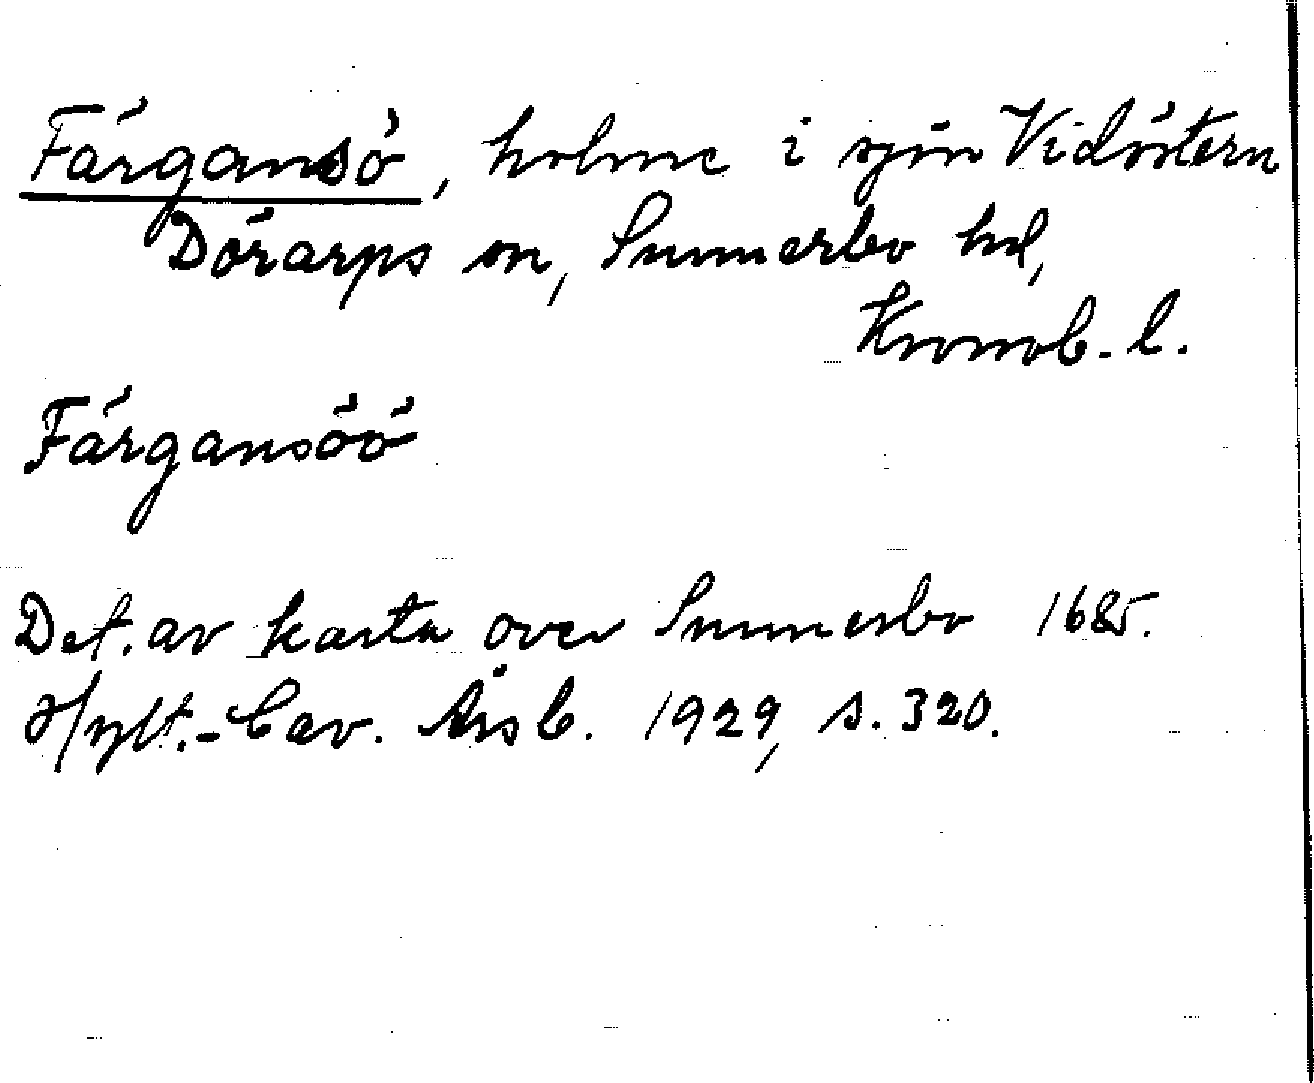 Färgansö, holme i sjön Vidöstern
Dörarps sn, Sunnerbo hd,
Kronob. l.
Färgansöö
Det. av karta över Sunnerbo 1685.
Hylt.-Cav. Årsb. 1929, s. 320.